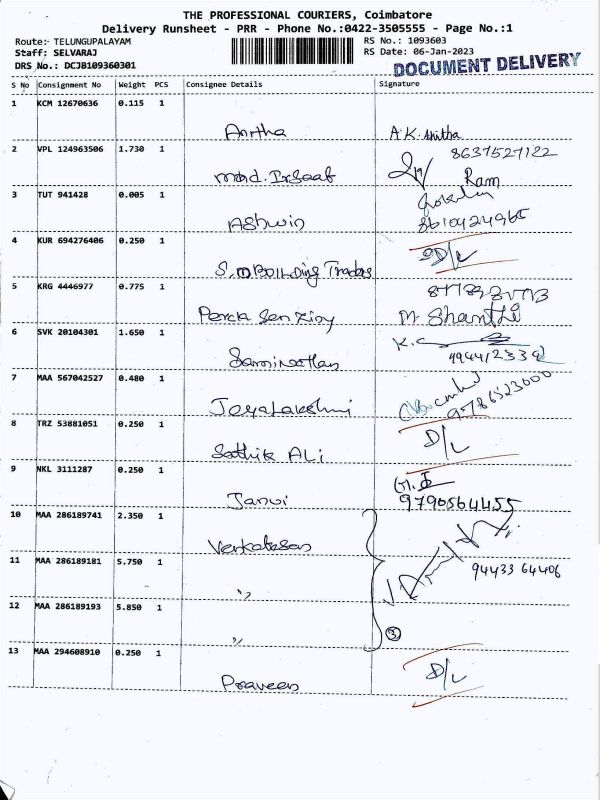 THE PROFESSIONAL COURIERS, Coimbatore
Delivery Runsheet - PRR - Phone No.:0422-3505555 - Page No.:1
Route:- TELUNGUPALAYAM RS No.: 1093603
Staff: SELVARAJ RS Date: 06-Jan-2023
DRS No.: DCJB109360301 DOCUMENT DELIVERY
S No Consignment No Weight PCS Consignee Details Signature
1 KCM 12670636 0.115 1
2 VPL 124963506 1.730 1 8637527122
Ram
3 TUT 941428 0.005 1
Ashwin 8610424965
4 KUR 694276406 0.250 1 D/L
5 KRG 4446977 0.775 1
M. Shanthi
6 SVK 20104301 1.650 1 K.C
7 MAA 567042527 0.480 1
Jeyalakshmi 9786523000
8 TRZ 53881051 0.250 1 D/L
Sathik ALi
9 NKL 3111287 0.250 1
Janvi 9790564455
10 MAA 286189741 2.350 1
Venkatesan
11 MAA 286189181 5.750 1 94433 64406
"
12 MAA 286189193 5.850 1
" 3
13 MAA 294608910 0.250 1 D/L
Praveen